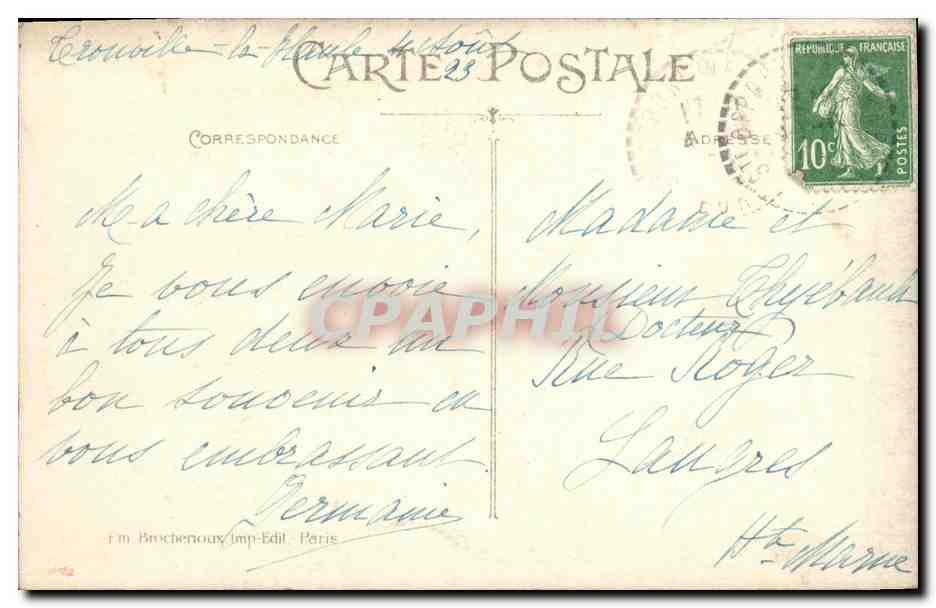 Tronville-la-Haule 4 Août
23
CARTE POSTALE
RÉPUBLIQUE FRANÇAISE
10c
POSTES
CORRESPONDANCE
ADRESSE
Ma chère Marie,
Je vous envoie
à tous deux un
bon souvenir en
vous embrassant
Germaine
Madame et
Monsieur Thyébault
Docteur
Rue Roger
Langres
Hte Marne
Em. Brocherioux Imp-Edit. Paris
CPAPHIL